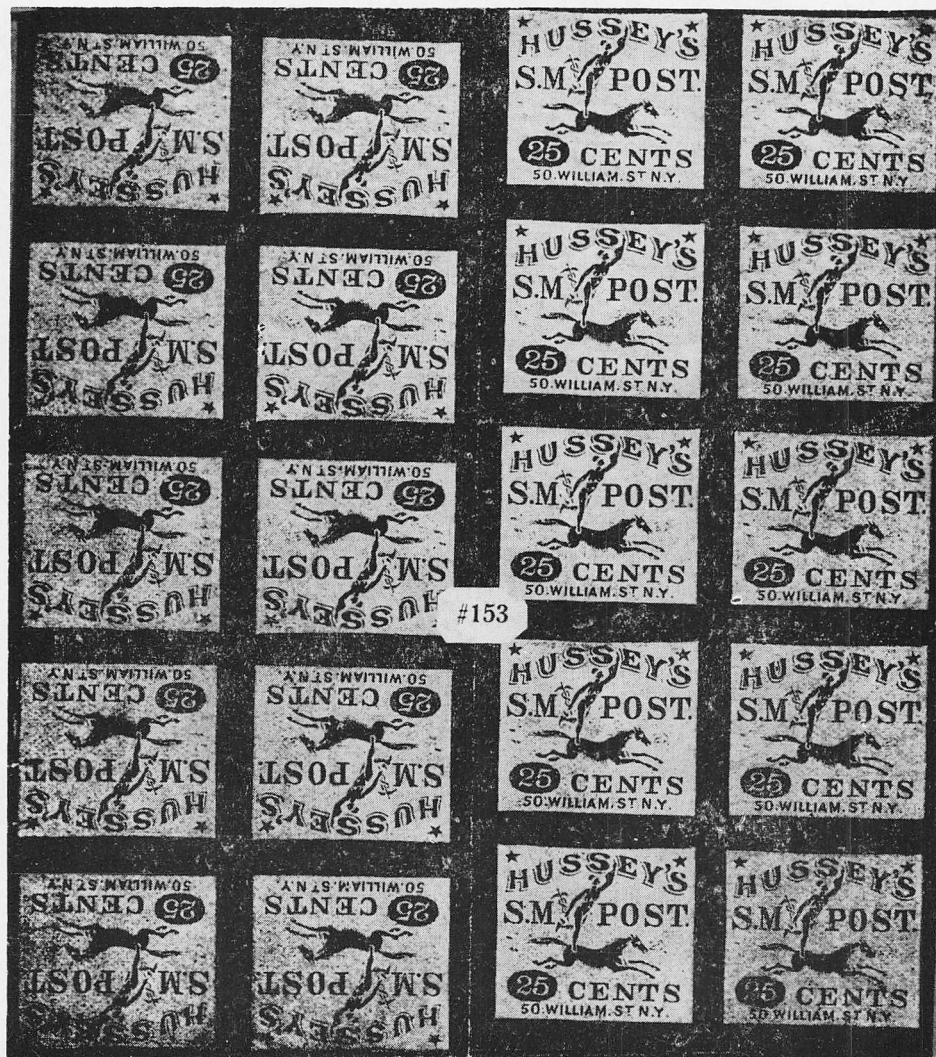 HUSSEY'S
S.M POST
25 CENTS
50.WILLIAM.ST N.Y.
HUSSEY'S
S.M POST.
25 CENTS
50.WILLIAM.ST N.Y.
HUSSEY'S
S.M POST.
25 CENTS
50.WILLIAM.ST N.Y.
HUSSEY'S
S.M POST.
25 CENTS
50.WILLIAM.ST N.Y.
HUSSEY'S
S.M POST
25 CENTS
50.WILLIAM.ST N.Y.
HUSSEY'S
S.M POST.
25 CENTS
50.WILLIAM.ST N.Y.
HUSSEY'S
S.M POST.
25 CENTS
50.WILLIAM.ST N.Y.
HUSSEY'S
S.M POST.
25 CENTS
50.WILLIAM.ST N.Y.
HUSSEY'S
S.M POST
25 CENTS
50.WILLIAM.ST N.Y.
HUSSEY'S
S.M POST.
25 CENTS
50.WILLIAM.ST N.Y.
HUSSEY'S
S.M POST.
25 CENTS
50.WILLIAM.ST N.Y.
HUSSEY'S
S.M POST.
25 CENTS
50.WILLIAM.ST N.Y.
#153
HUSSEY'S
S.M POST
25 CENTS
50.WILLIAM.ST N.Y.
HUSSEY'S
S.M POST.
25 CENTS
50.WILLIAM.ST N.Y.
HUSSEY'S
S.M POST.
25 CENTS
50.WILLIAM.ST N.Y.
HUSSEY'S
S.M POST.
25 CENTS
50.WILLIAM.ST N.Y.
HUSSEY'S
S.M POST
25 CENTS
50.WILLIAM.ST N.Y.
HUSSEY'S
S.M POST
25 CENTS
50.WILLIAM.ST N.Y.
HUSSEY'S
S.M POST
25 CENTS
50.WILLIAM.ST N.Y.
HUSSEY'S
S.M POST
25 CENTS
50.WILLIAM.ST N.Y.